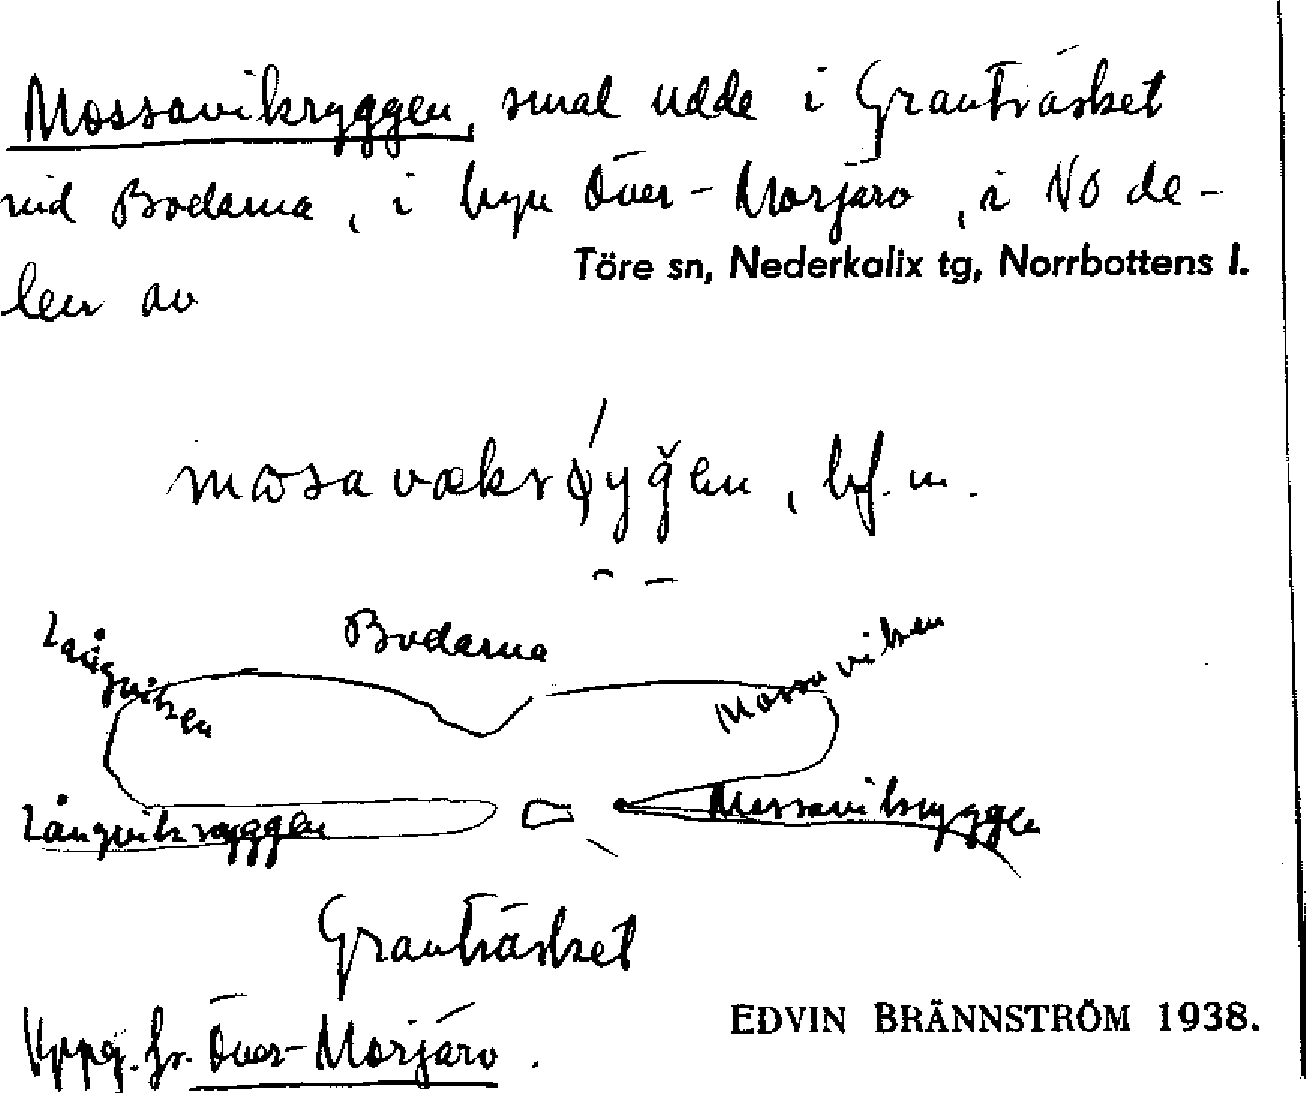 Mossavikryggen, smal udde i Granträsket
vid Bodarna, i byn Över-Morjärv, i NO de-
Töre sn, Nederkalix tg, Norrbottens l.
len av
bf. m.
Bodarna
Långviken
Mossaviken
Långvikryggen
Mossavikryggen
Granträsket
Uppg. fr. Över-Morjärv.
EDVIN BRÄNNSTRÖM 1938.